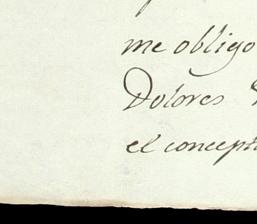 me obligo
Dolores
el concept